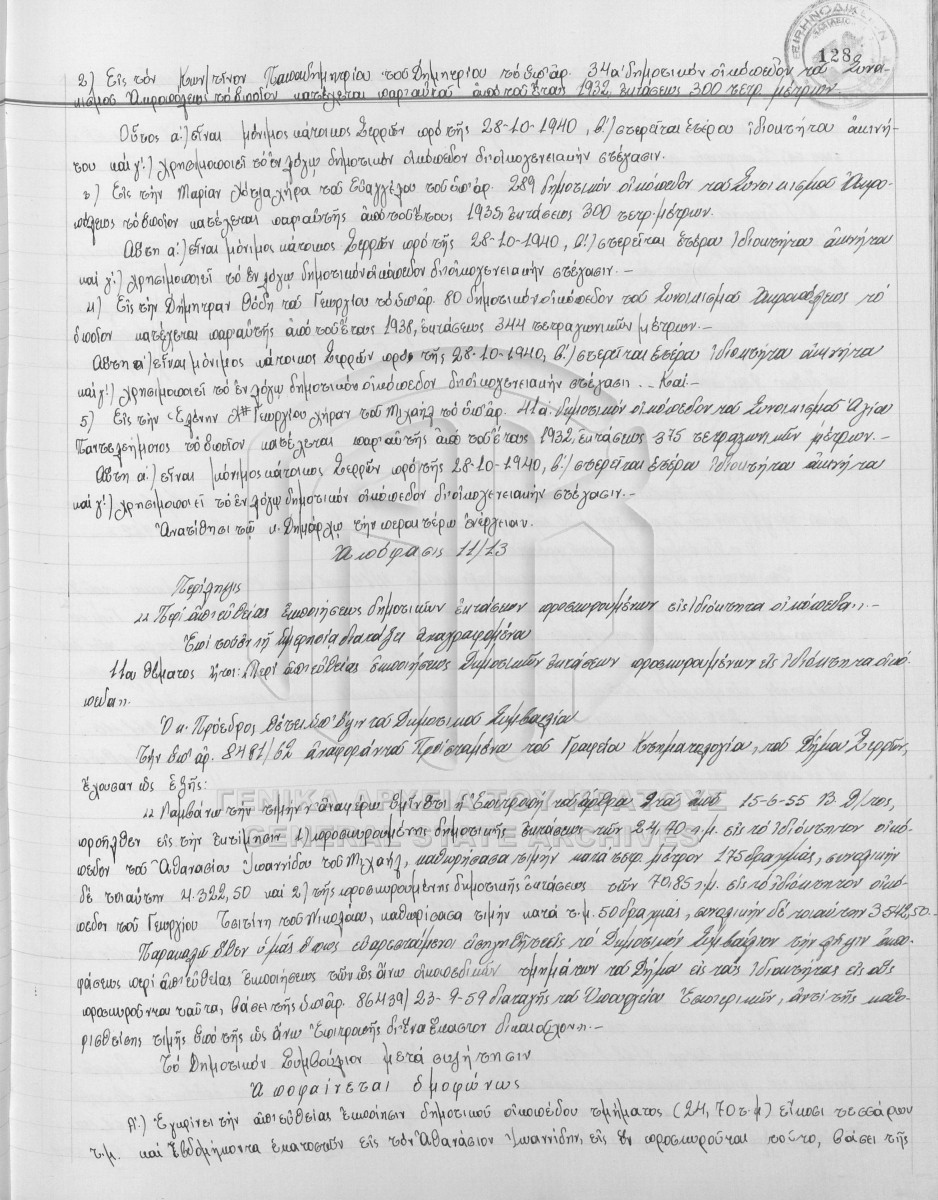 128
2) Εἰς τόν Κων/τῖνον Παπαδημητρίου τοῦ Δημητρίου τό ὑπ' ἀρ. 34α δημοτικόν οἰκόπεδον τοῦ Συνοι-
κισμοῦ Ἀκροπόλεως τό ὁποῖον κατέχεται παρ' αὐτοῦ ἀπό τοῦ ἔτους 1932, ἐκτάσεως 300 τετρ. μέτρων.
Οὗτος α!) εἶναι μόνιμος κάτοικος Σερρῶν πρό τῆς 28-10-1940, β!) στερεῖται ἑτέρου ἰδιοκτήτου ἀκινή-
του καί γ!) χρησιμοποιεῖ τό ἐν λόγῳ δημοτικόν οἰκόπεδον δι' οἰκογενειακήν στέγασιν.
3) Εἰς τήν Μαρίαν χήρα τοῦ Εὐαγγέλου τό ὑπ' ἀρ. 289 δημοτικόν οἰκόπεδον τοῦ Συνοικισμοῦ Ἀκρο-
πόλεως τό ὁποῖον κατέχεται παρ' αὐτῆς ἀπό τοῦ ἔτους 1935 ἐκτάσεως 300 τετρ. μέτρων.
Αὕτη α!) εἶναι μόνιμος κάτοικος Σερρῶν πρό τῆς 28-10-1940, β!) στερεῖται ἑτέρου ἰδιοκτήτου ἀκινήτου
καί γ!) χρησιμοποιεῖ τό ἐν λόγῳ δημοτικόν οἰκόπεδον δι' οἰκογενειακήν στέγασιν.-
4) Εἰς τήν Δήμητραν τοῦ Γεωργίου τό ὑπ' ἀρ. 80 δημοτικόν οἰκόπεδον τοῦ Συνοικισμοῦ Ἀκροπόλεως τό
ὁποῖον κατέχεται παρ' αὐτῆς ἀπό τοῦ ἔτους 1938, ἐκτάσεως 344 τετραγωνικῶν μέτρων.-
Αὕτη α!) εἶναι μόνιμος κάτοικος Σερρῶν πρό τῆς 28-10-1940, β!) στερεῖται ἑτέρου ἰδιοκτήτου ἀκινήτου
καί γ!) χρησιμοποιεῖ τό ἐν λόγῳ δημοτικόν οἰκόπεδον δι' οἰκογενειακήν στέγασιν.- Καί-
5) Εἰς τήν Ἑλένην Χ" Γεωργίου χήραν τοῦ Μιχαήλ τό ὑπ' ἀρ. 41α δημοτικόν οἰκόπεδον τοῦ Συνοικισμοῦ Ἁγίου
Παντελεήμονος τό ὁποῖον κατέχεται παρ' αὐτῆς ἀπό τοῦ ἔτους 1932, ἐκτάσεως 375 τετραγωνικῶν μέτρων.-
Αὕτη α!) εἶναι μόνιμος κάτοικος Σερρῶν πρό τῆς 28-10-1940, β!) στερεῖται ἑτέρου ἰδιοκτήτου ἀκινήτου
καί γ!) χρησιμοποιεῖ τό ἐν λόγῳ δημοτικόν οἰκόπεδον δι' οἰκογενειακήν στέγασιν.-
Ἀνατίθησι τῷ κ. Δημάρχῳ τήν περαιτέρω ἐνέργειαν.
Ἀπόφασις 11/13
Περίληψις
"Περί ἀπ' εὐθείας ἐκποιήσεως δημοτικῶν ἐκτάσεων προσκυρουμένων εἰς ἰδιόκτητα οἰκόπεδα".-
Ἐπί τοῦ ἐν τῇ ἡμερησίᾳ διατάξει ἀναγραφομένου
11ου θέματος ἤτοι: "Περί ἀπ' εὐθείας ἐκποιήσεως Δημοτικῶν ἐκτάσεων προσκυρουμένων εἰς ἰδιόκτητα οἰκό-
πεδα".
Ὁ κ. Πρόεδρος θέτει ὑπ' ὄψιν τοῦ Δημοτικοῦ Συμβουλίου
Τήν ὑπ' ἀρ. 8481/62 ἀναφοράν τοῦ Προϊσταμένου τοῦ Γραφείου Κτηματολογίου, τοῦ Δήμου Σερρῶν,
ἔχουσαν ὡς ἑξῆς:
ΓΕΝΙΚΑ ΑΡΧΕΙΑ ΤΟΥ ΚΡΑΤΟΥΣ
"Λαμβάνω τήν τιμήν ν' ἀναφέρω ὑμῖν ὅτι ἡ Ἐπιτροπή τοῦ ἄρθρου 2 τοῦ ἀπό 15-6-55 Β. Δ/τος,
GENERAL STATE ARCHIVES
προῆλθεν εἰς τήν ἐκτίμησιν 1) προσκυρουμένης δημοτικῆς ἐκτάσεως τῶν 24,70 τ.μ. εἰς τό ἰδιόκτητον οἰκό-
πεδον τοῦ Ἀθανασίου Ἰωαννίδου τοῦ Μιχαήλ, καθωρίσασα τιμήν κατά τετρ. μέτρον 175 δραχμάς, συνολικήν
δέ τοιαύτην 4.322,50 καί 2) τῆς προσκυρουμένης δημοτικῆς ἐκτάσεως τῶν 70,85 τ.μ. εἰς τό ἰδιόκτητον οἰκό-
πεδον τοῦ Γεωργίου Τσιτίνη τοῦ Νικολάου, καθωρίσασα τιμήν κατά τ.μ. 50 δραχμάς, συνολικήν δέ τοιαύτην 3542,50.-
Παρακαλῶ ὅθεν ὑμᾶς ὅπως εὐαρεστούμενοι εἰσηγηθῆτε εἰς τό Δημοτικόν Συμβούλιον τήν λῆψιν ἀπο-
φάσεως περί ἀπ' εὐθείας ἐκποιήσεως τῶν ὡς ἄνω οἰκοπεδικῶν τμημάτων τοῦ Δήμου εἰς τούς ἰδιοκτήτας εἰς οὓς
προσκυροῦνται ταῦτα, βάσει τῆς ὑπ' ἀρ. 86439/23-9-59 διαταγῆς τοῦ Ὑπουργείου Ἐσωτερικῶν, ἀντί τῆς καθο-
ρισθείσης τιμῆς ὑπό τῆς ὡς ἄνω Ἐπιτροπῆς δι' ἕνα ἕκαστον δικαιοῦχον".-
Τό Δημοτικόν Συμβούλιον μετά συζήτησιν
Ἀποφαίνεται ὁμοφώνως
Α!) Ἐγκρίνει τήν ἀπ' εὐθείας ἐκποίησιν δημοτικοῦ οἰκοπέδου τμήματος (24,70 τ.μ) εἴκοσι τεσσάρων
τ.μ. καί ἑβδομήκοντα ἑκατοστῶν εἰς τόν Ἀθανάσιον Ἰωαννίδην, εἰς ὃν προσκυροῦται τοῦτο, βάσει τῆς